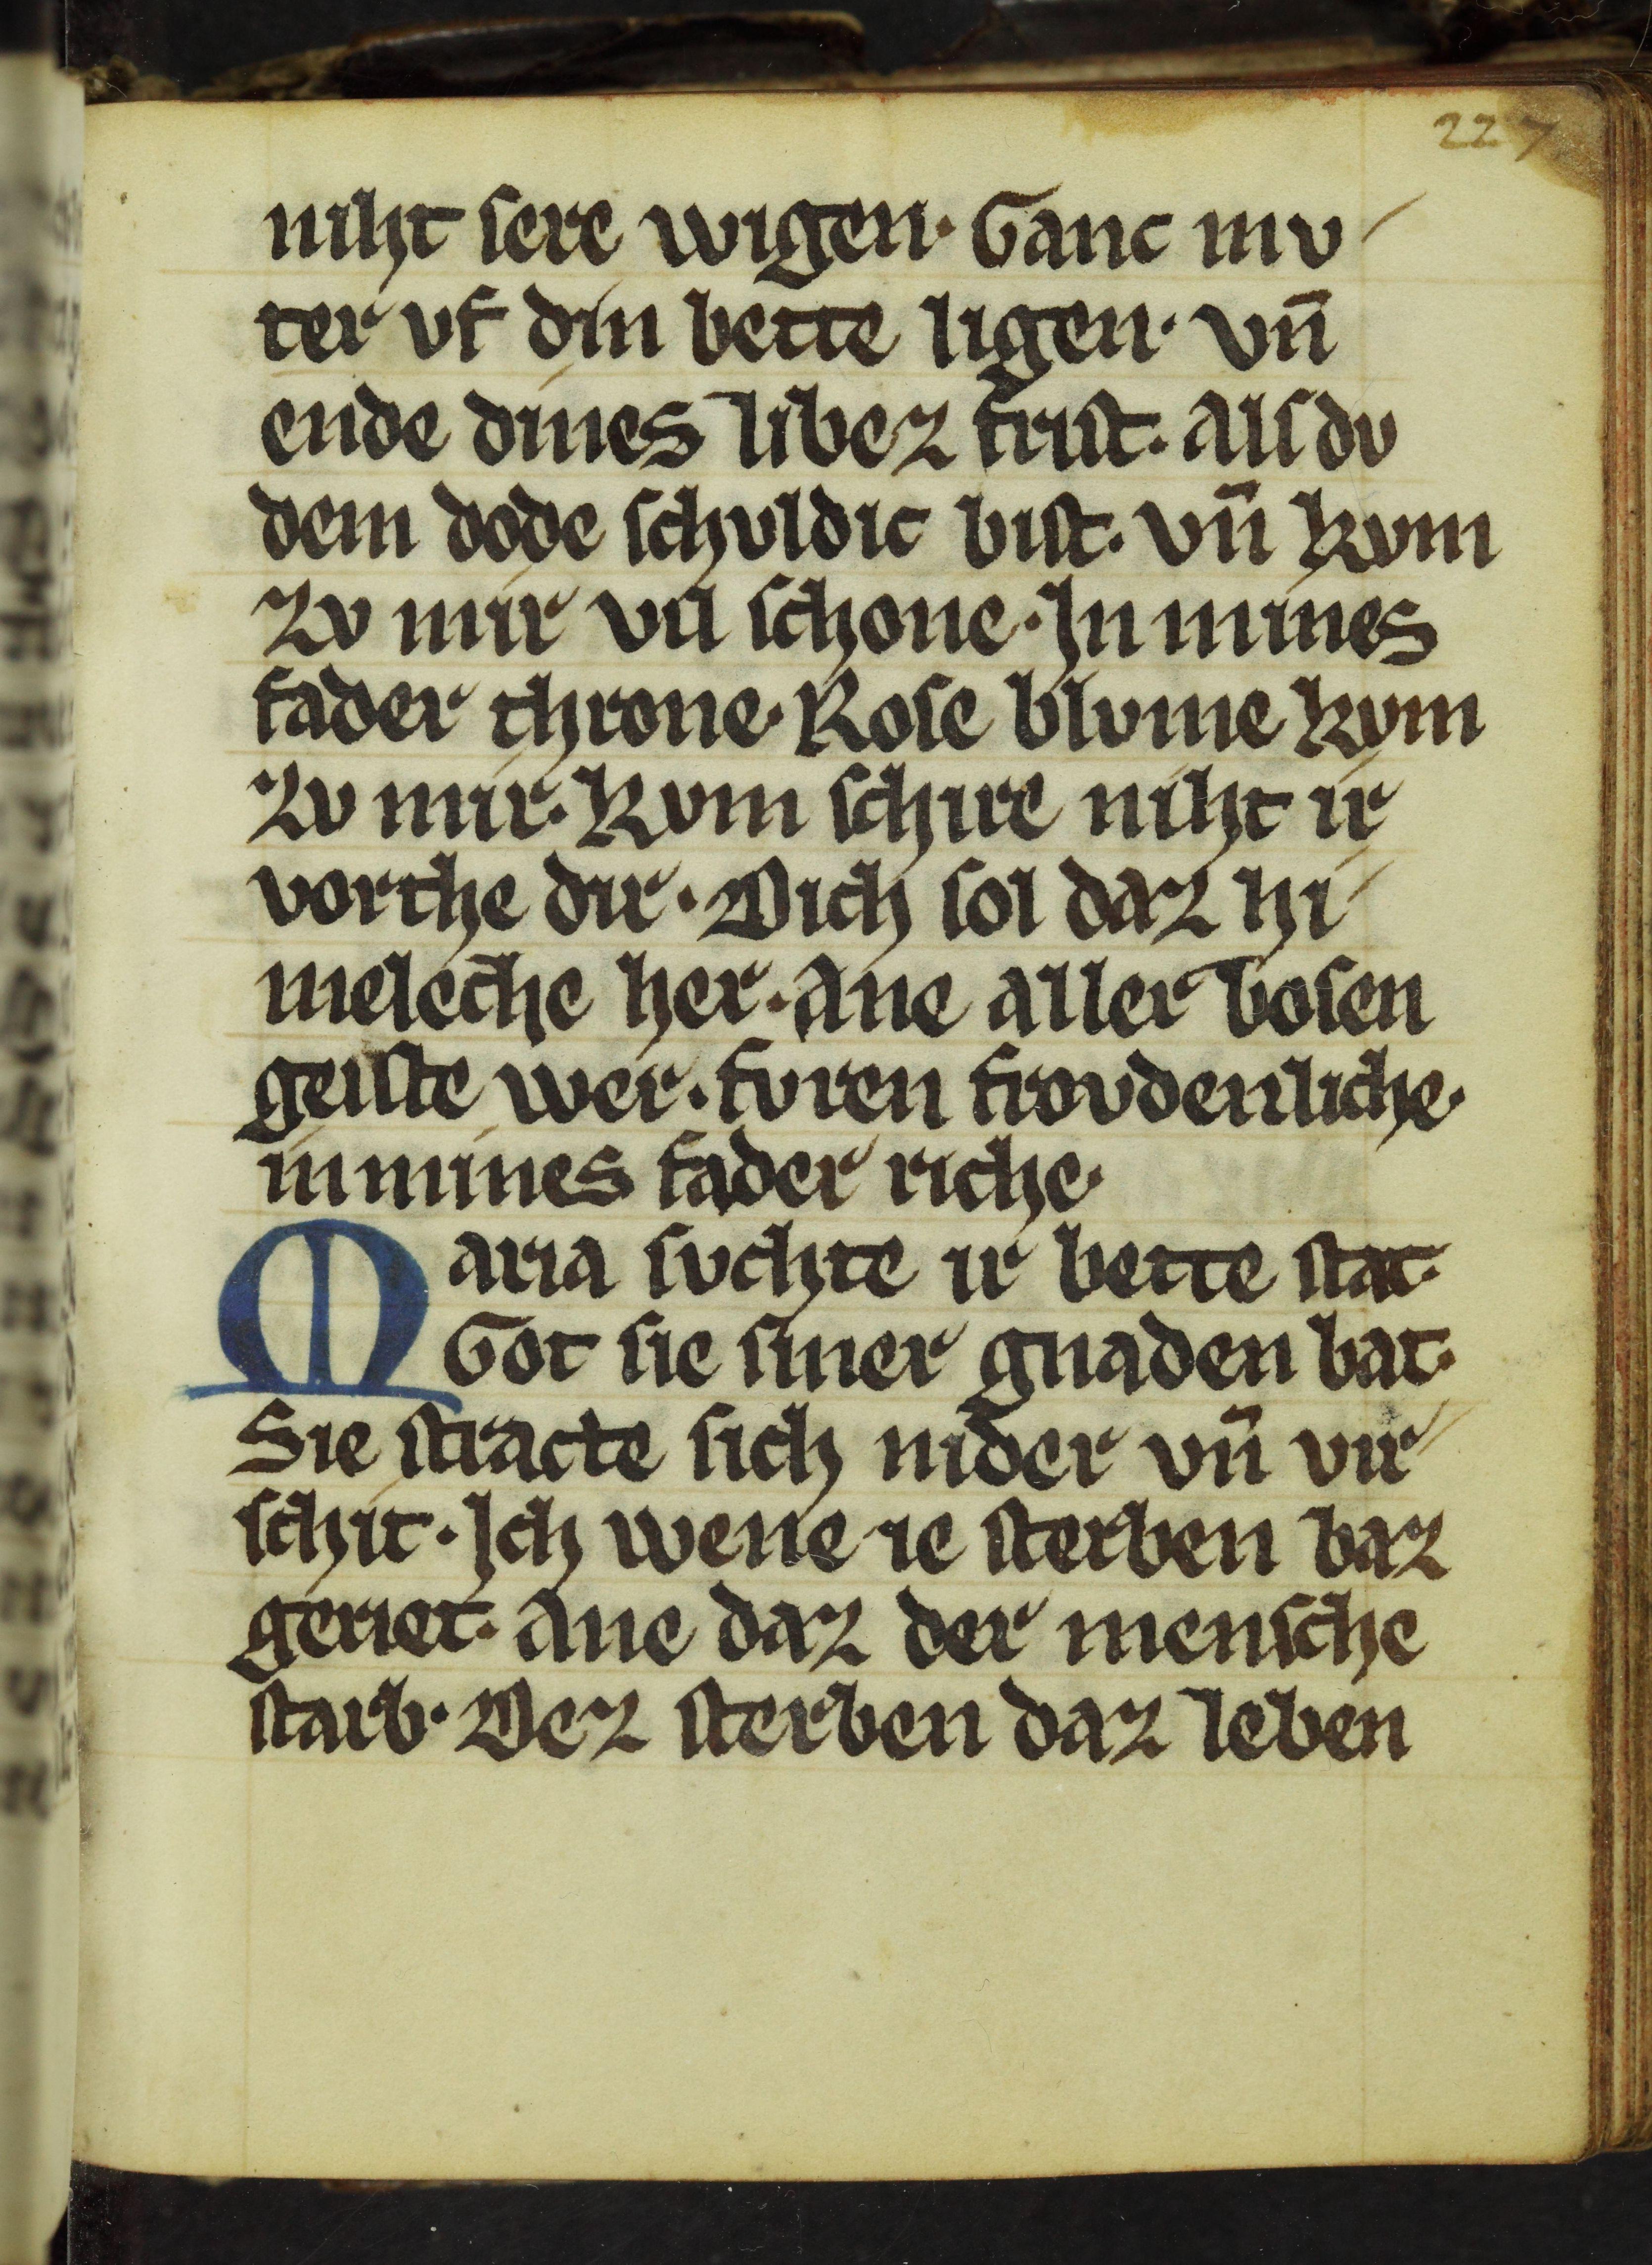 227
niht sere wigen· Ganc mv-
ter vf din bette ligen· vn̄
ende dines libez frist· Als dv
dem dode schvldic bist· vn̄ kvm
zv mir vil schone· In mines
fader throne· Rose blvme kvm
zv mir· kvm schire niht ir
vorthe dir· Dich sol daz hi-
melesche her· Ane aller bosen
geiste wer· fvren frovdenliche·
in mines fader riche·
Maria svchte ir bette stat·
Got sie siner gnaden bat·
Sie stracte sich nider vn̄ vir-
schit· Ich wene ie sterben baz
geriet· Ane daz der mensche
starb· Dez sterben daz leben